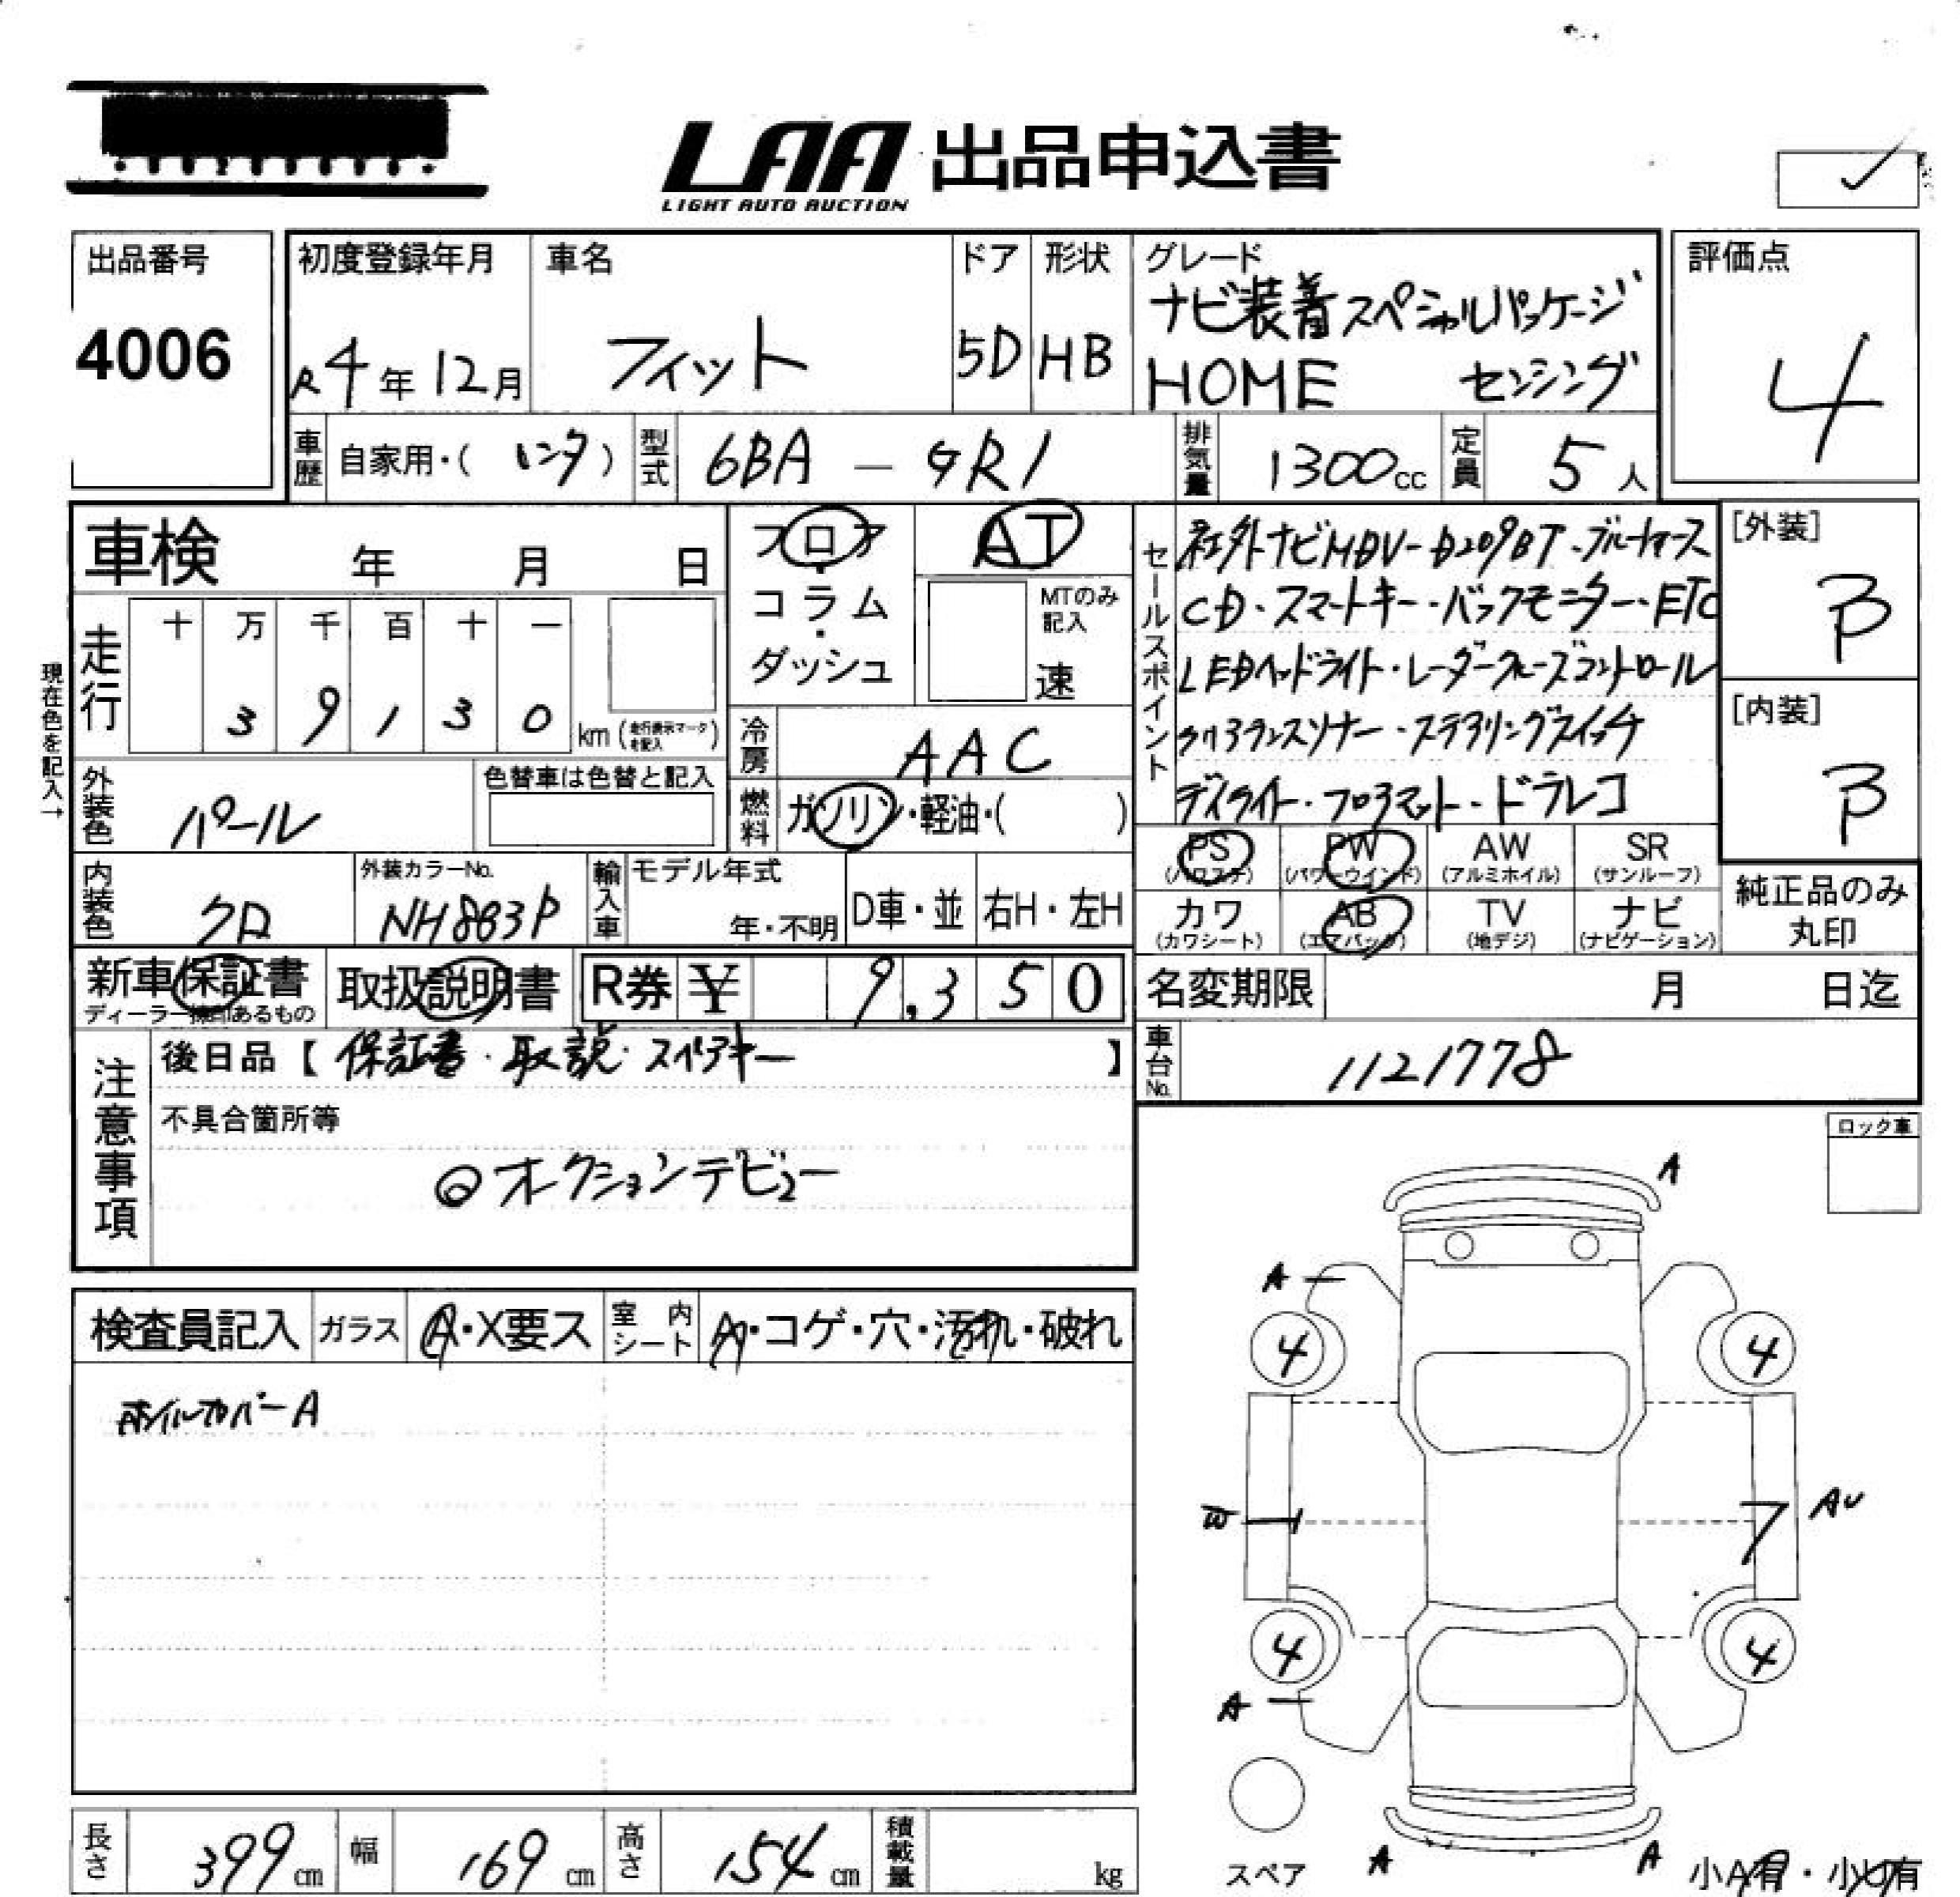 LAA 出品申込書
LIGHT AUTO AUCTION
出品番号
4006
初度登録年月
R4年12月
車名
フィット
ドア
5D
形状
HB
グレード
ナビ装着スペシャルパッケージ
HOME センシング
評価点
4
車歴 自家用・(レンタ)
型式 6BA - GR1
排気量 1300cc
定員 5人
車検 年 月 日
フロア・コラム・ダッシュ
AT
MTのみ記入
速
セールスポイント
社外ナビMDV-D209BT・ブルートゥース
CD・スマートキー・バックモニター・ETC
LEDヘッドライト・レーダークルーズコントロール
クリアランスソナー・ステアリングスイッチ
デイライト・フロアマット・ドラレコ
[外装]
B
[内装]
B
現在色を記入→
走行
十 万 千 百 十 一
3 9 1 3 0
km (走行表示マークを記入)
冷房 AAC
外装色 パール
色替車は色替と記入
燃料 ガソリン・軽油・( )
内装色 クロ
外装カラーNo.
NH883P
輸入車
モデル年式
年・不明
D車・並
右H・左H
PS
(パワステ)
PW
(パワーウインド)
AW
(アルミホイル)
SR
(サンルーフ)
カワ
(カワシート)
AB
(エアバック)
TV
(地デジ)
ナビ
(ナビゲーション)
純正品のみ
丸印
新車保証書
ディーラー捺印あるもの
取扱説明書
R券 ¥ 9,350
名変期限 月 日迄
車台No. 1121778
注意事項
後日品【 保証書・取説・スペアキー 】
不具合箇所等
◎オークションデビュー
ロック車
検査員記入
ガラス A・X要ス
室内シート A・コゲ・穴・汚れ・破れ
ホイルカバーA
A
A
4
4
W
AU
4
4
A
スペア
A
A
小A有・小U有
長さ 399cm
幅 169cm
高さ 154cm
積載量 kg